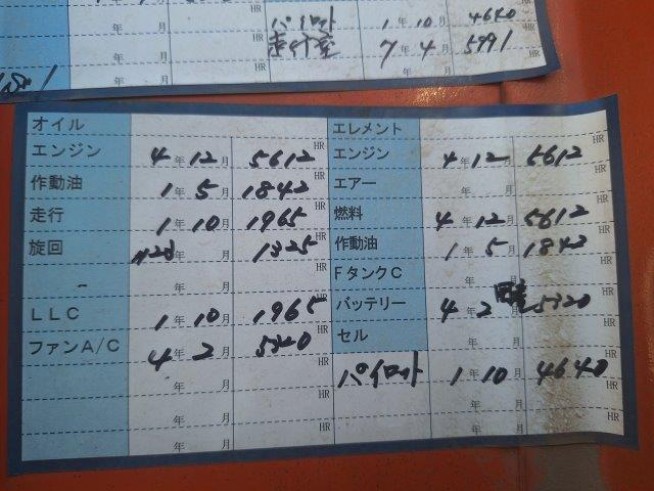 パイロット 1年10月 4640 HR
7年4月 5991 HR
年 月 HR
オイル エレメント
エンジン 4年12月 5612 HR エンジン 4年12月 5612 HR
作動油 1年5月 1842 HR エアー 年 月 HR
走行 1年10月 1965 HR 燃料 4年12月 5612 HR
旋回 1325 HR 作動油 1年5月 1842 HR
- 年 月 HR FタンクC 年 月 HR
LLC 1年10月 1965 HR バッテリー 4年2月 5320 HR
ファンA/C 4年2月 5320 HR セル 年 月 HR
年 月 HR パイロット 1年10月 4640 HR
年 月 HR 年 月 HR
年 月 HR 年 月 HR